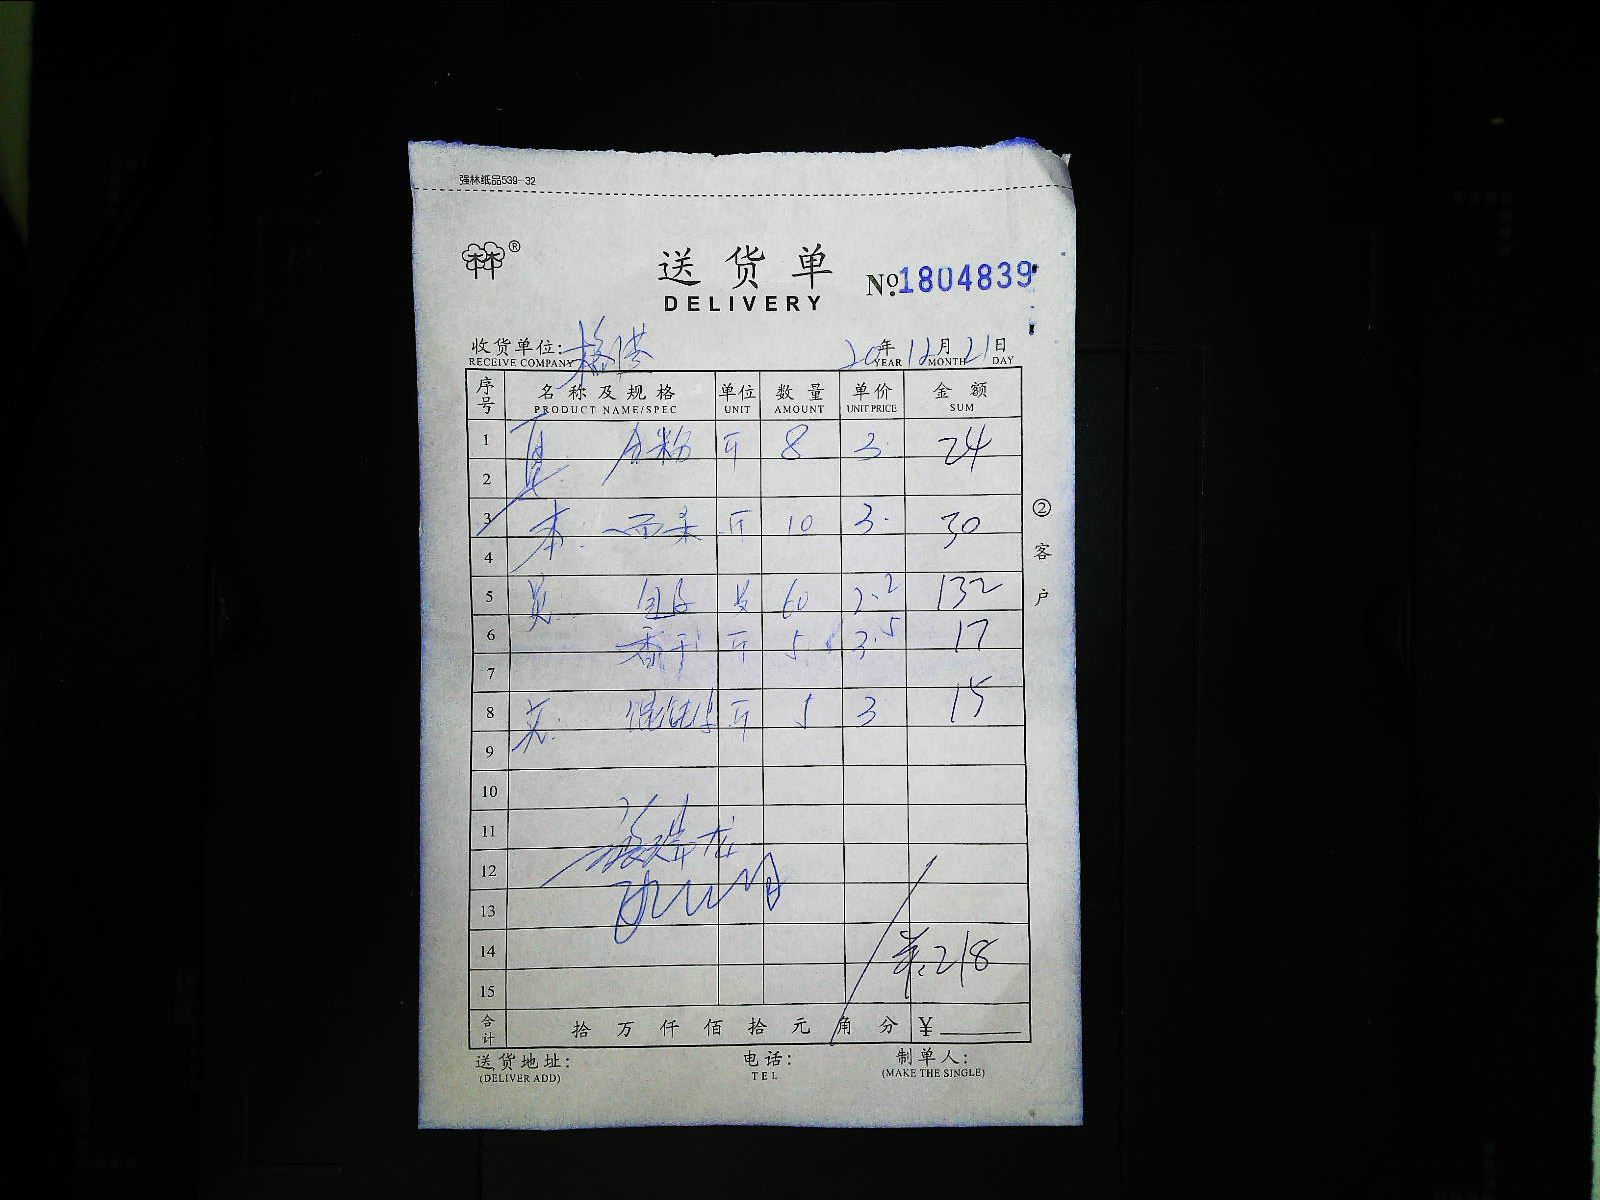 强林纸品539-32
®
送货单
DELIVERY
№1804839
收货单位:
RECEIVE COMPANY
20年12月21日
YEAR MONTH DAY
序号 名称及规格 单位 数量 单价 金额
PRODUCT NAME/SPEC UNIT AMOUNT UNIT PRICE SUM
1 斤 8 3. 24
2
3 斤 10 3. 30
4
5 60 2.2 132
6 香干 斤 5 3.5 17
7
8 斤 5 3 15
9
10
11
12
13
14 218
15
合计 拾 万 仟 佰 拾 元 角 分 ¥
②客户
送货地址: 电话: 制单人:
(DELIVER ADD) TEL (MAKE THE SINGLE)